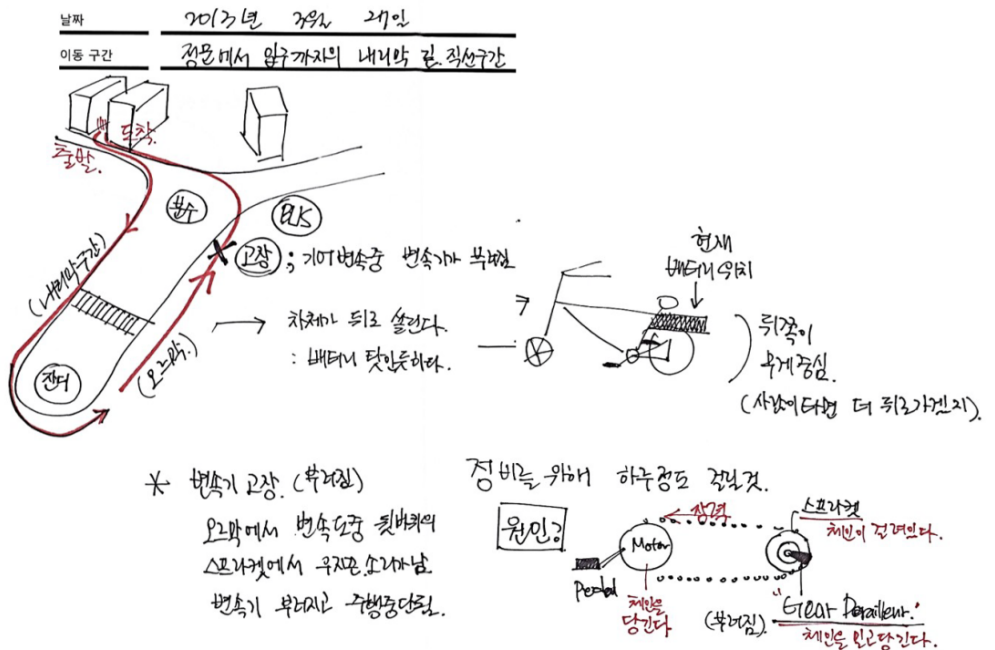 날짜 2013년 3월 27일
이동 구간 정문에서 입구까지의 내리막 길. 직선구간
도착.
출발.
분수
BUS
고장 ; 기어변속중 변속기가 부러짐
(내리막구간)
(오르막.)
잔디
→ 차체가 뒤로 쏠린다.
: 배터리 탓인듯하다.
현재
배터리 위치
뒤쪽이
무게중심.
(사람이타면 더 뒤로가겠지).
* 변속기 고장. (부러짐)
오르막에서 변속도중 뒷바퀴의
스프라켓에서 우지끈.소리가남.
변속기 부러지고 주행중단됨.
정비를 위해 하루정도 걸릴것.
원인?
장력
스프라켓
체인이 걸려있다.
Motor
pedal
체인을
당긴다
(부러짐).
Gear Derailleur.
체인을 밀고당긴다.